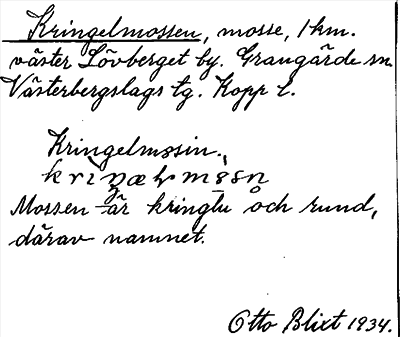 Kringelmossen, mosse, 1 km.
väster Lövberget by. Grangärde sn.
Västerbergslags tg. Kopp. l.
Kringelmosin.
Mossen är kringlu och rund,
därav namnet.
Otto Blixt 1934.